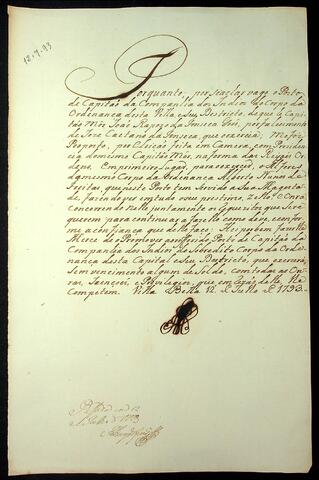 12-7-93
Porquanto, por se achar vago o Posto
de Capitaõ da Companhia dos Indios do Corpo da
Ordenança desta Villa e seu Destricto, de que hé Capi-
taõ Mór Joaõ Raposo da Fonseca Goes, pela
de Jozé Caetano da Fonseca, que o exercia, Me foi
Proposto, por Eleiçaõ feita em Camera, com Presiden-
cia do mesmo Capitaõ Mór, na forma das Reaes Or-
dens, Em primeiro lugar, para o exercer, o Alferes
do mesmo Corpo da Ordenança Alberto Nunes de
Freitas, que neste Posto tem servido a Sua Magesta-
de, fazendo que
concorrem os
querem para continuar a fazello como deve, e confor-
me a confiança que delle faço: Hei por bem fazer lhe
Merce de o Promover no referido Posto de Capitaõ da
Companhia dos Indios do sobredito Corpo da Orde-
nança desta Capital e seu Destricto, que exercerá,
sem vencimento algum de Soldo, com todas as Hon-
ras, Izençoes, e Privilegios, que em razaõ delle lhe
competem. Villa Bella 12 de Julho de 1793.